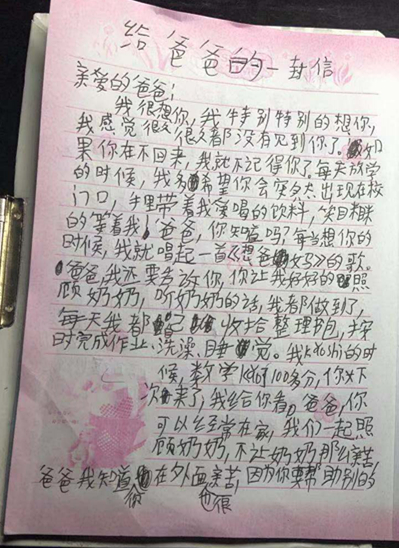 给爸爸的一封信
亲爱的爸爸:
我很想你,我特别特别的想你,
我感觉很久很久都没有见到你了。如
果你在不回来,我就不记得你了。每天放学
的时候,我多希望你会突然出现在校
门口,手里带着我爱喝的饮料,笑眯眯
的等着我!爸爸,你知道吗?每当想你的
时候,我就唱起一首《想爸爸妈妈》的歌。
爸爸,我还要告诉你,你让我好好的照
顾奶奶,听奶奶的话,我都做到了,
每天我都收拾整理书包,按
时完成作业、洗澡、睡觉。我kǎoshì的时
候,数学100多分,你下
次来了,我给你看。爸爸,你
可以经常在家,我们一起照
顾奶奶,不让奶奶那么辛苦,
爸爸我知道你在外面也很辛苦,因为你要帮助别的